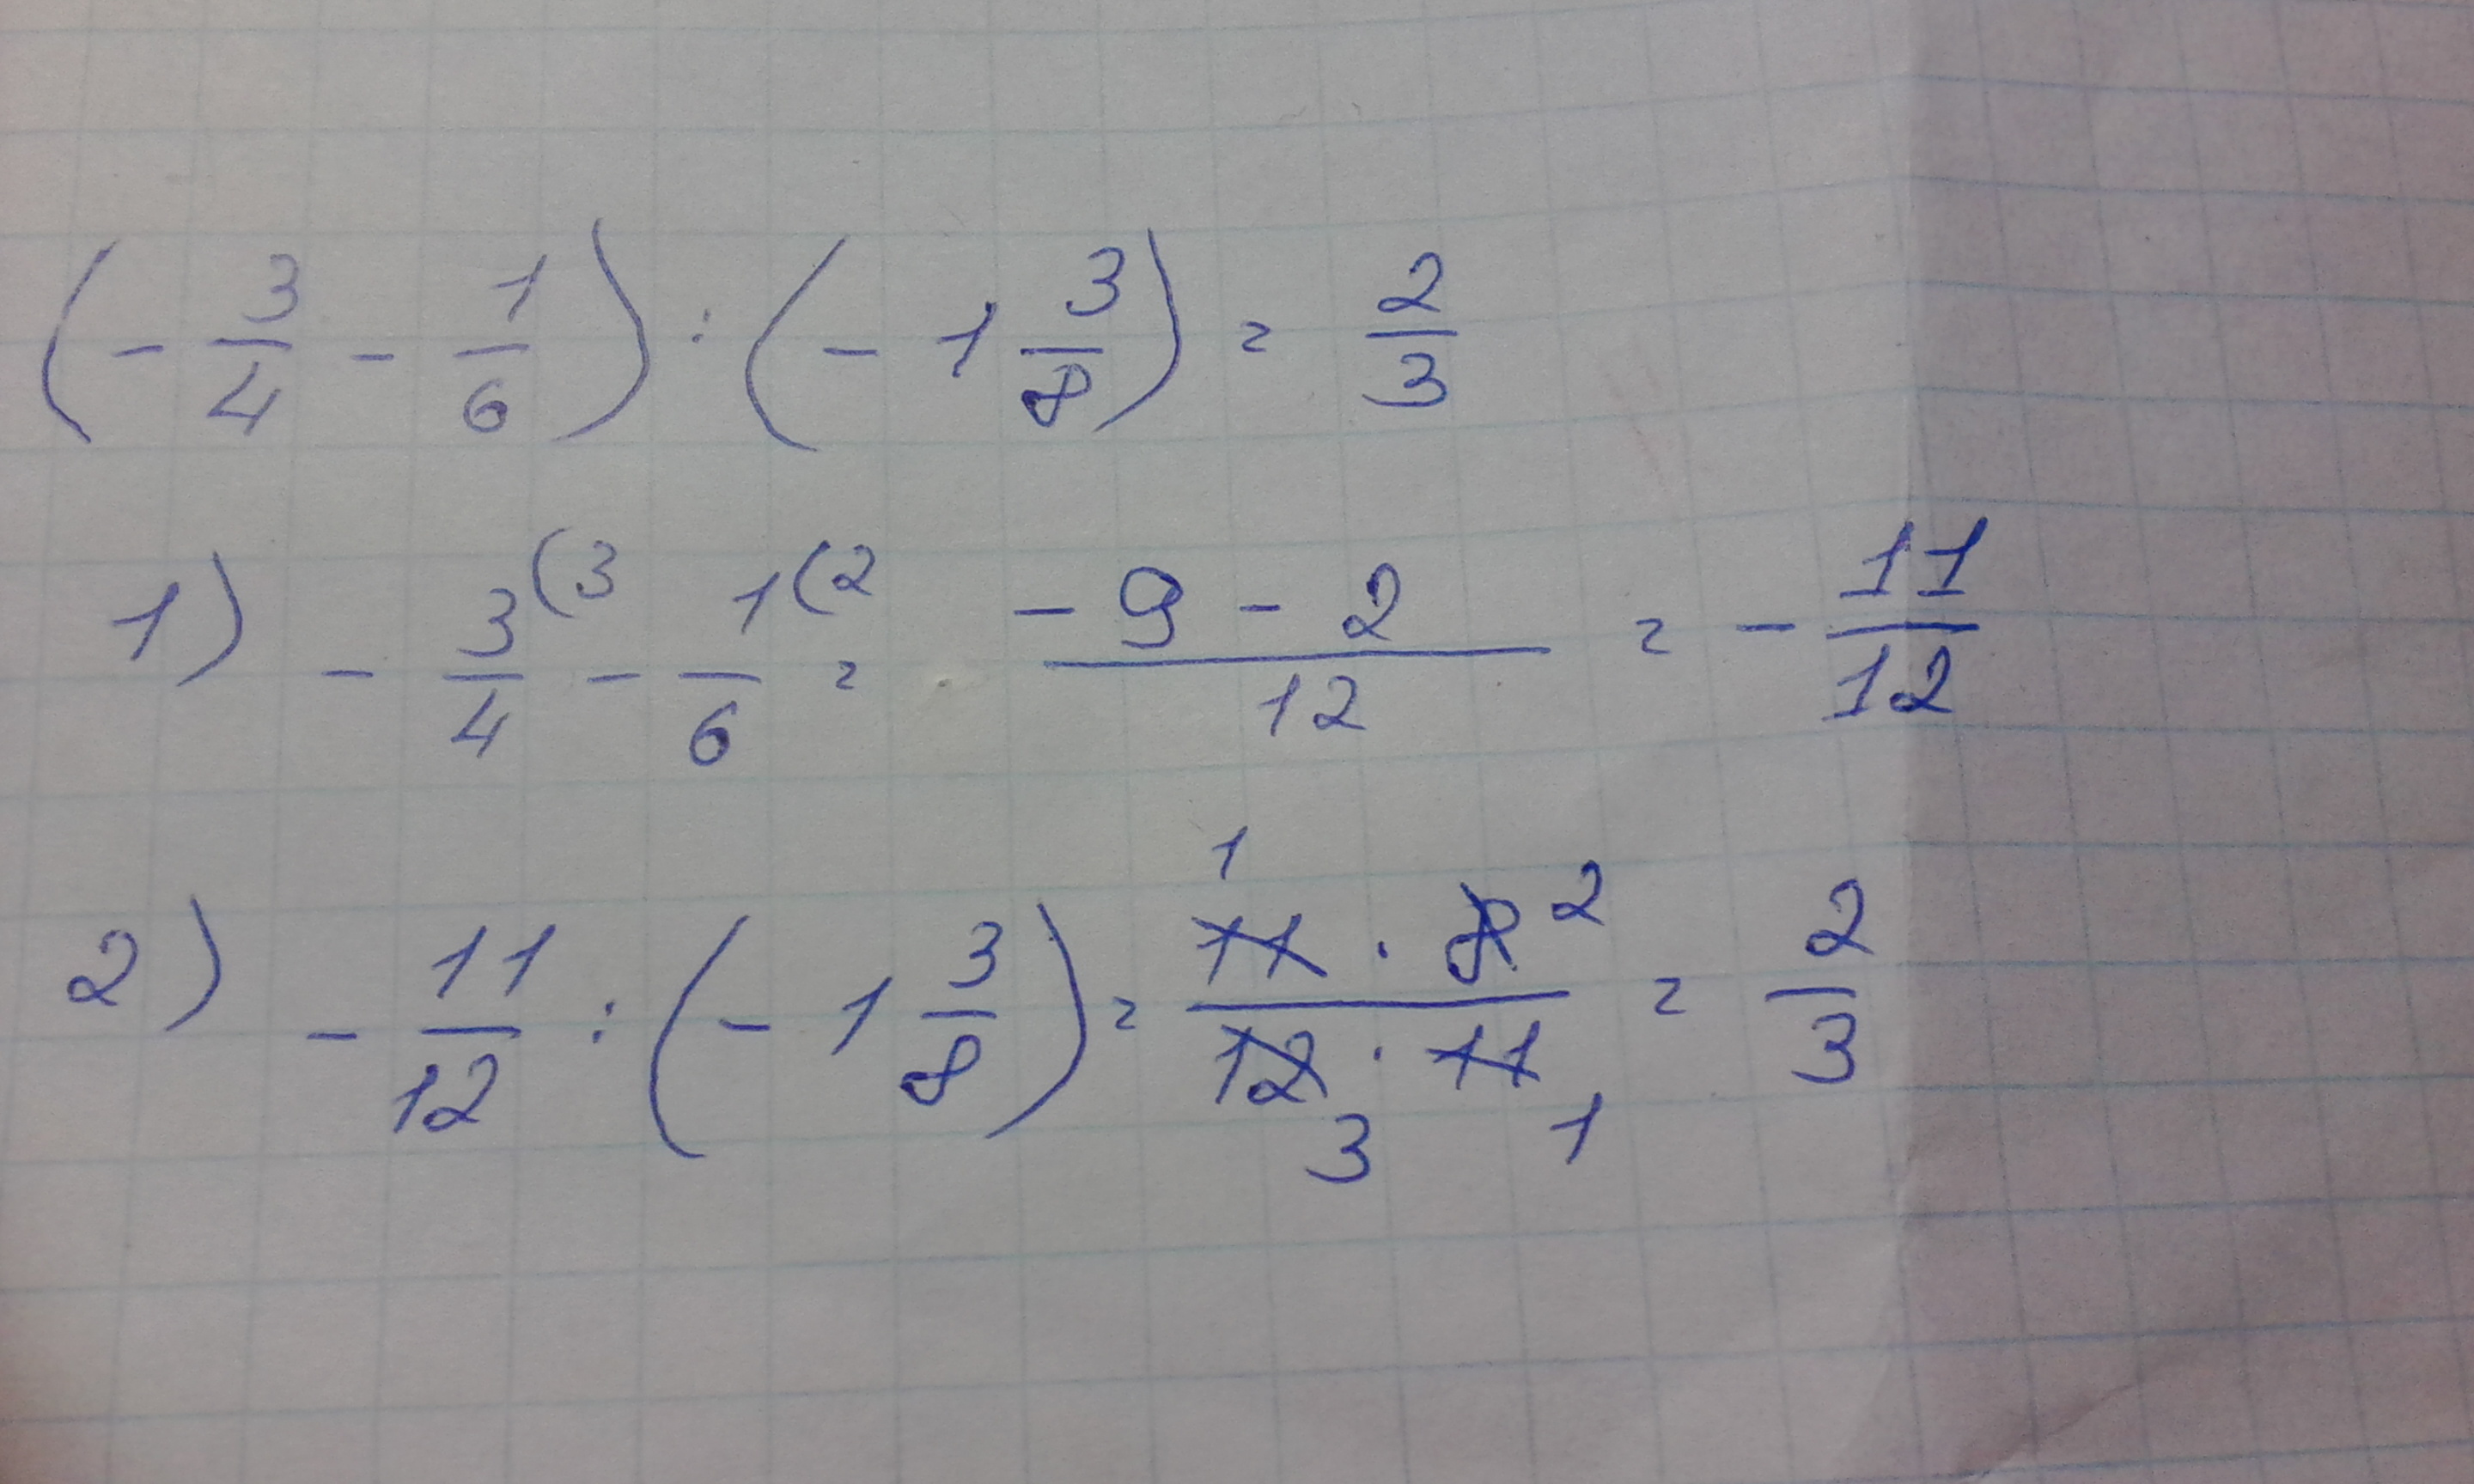 (- 3/4 - 1/6) : (- 1 3/8) = 2/3
1) - 3/4 (3 - 1/6 (2 = - 9 - 2 / 12 = - 11/12
2) - 11/12 : (- 1 3/8) = 11 1 · 8 2 / 12 3 · 11 1 = 2/3